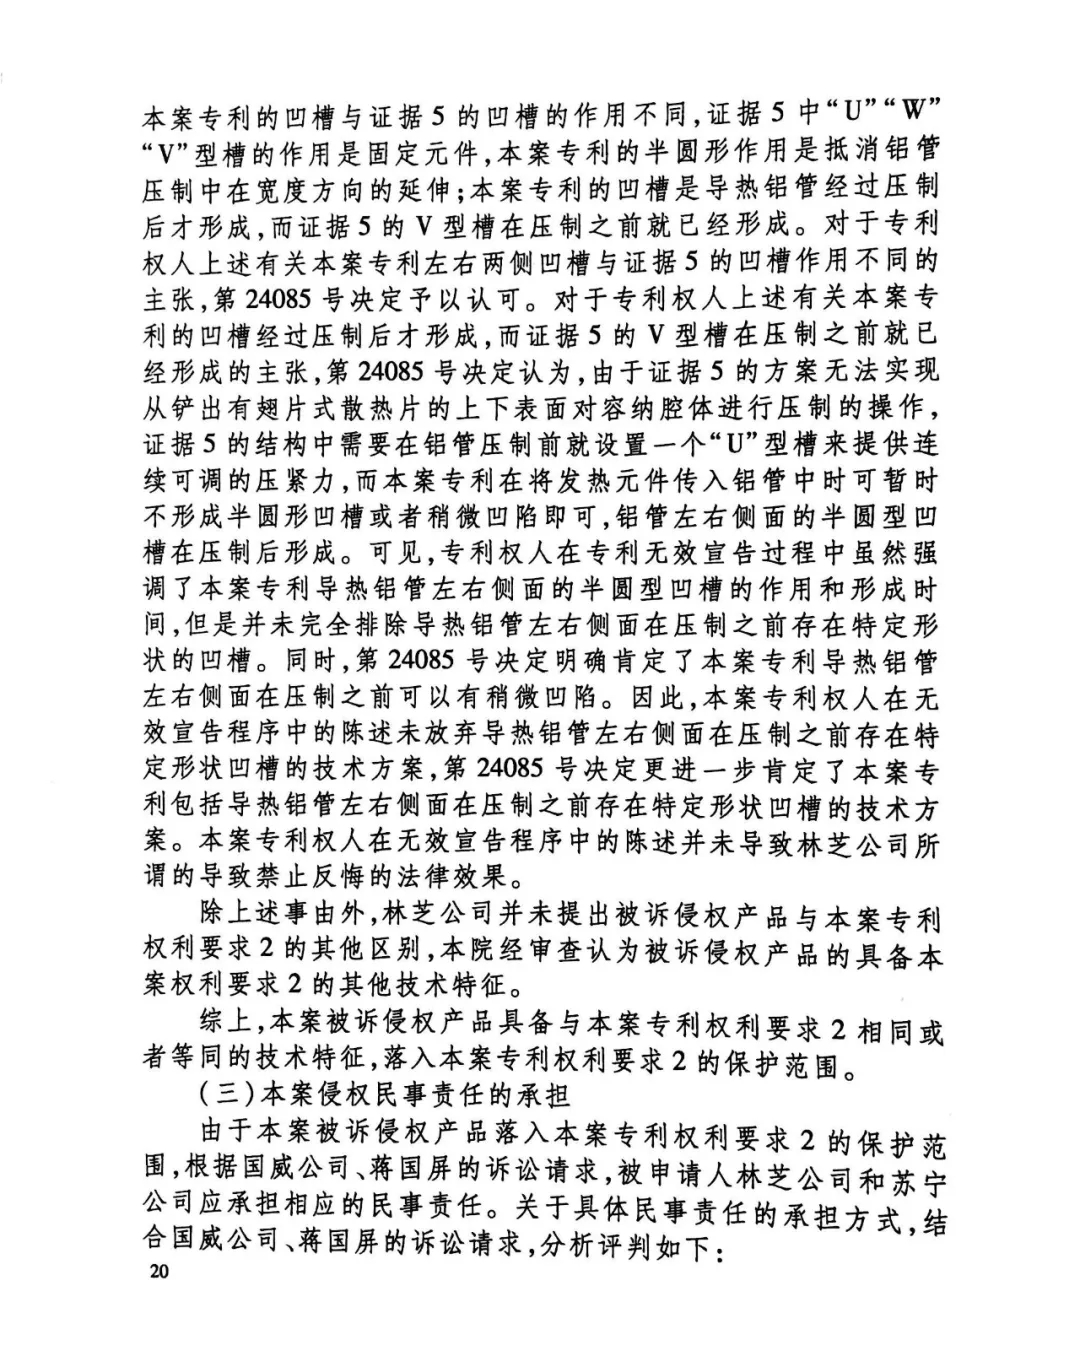 本案专利的凹槽与证据5的凹槽的作用不同,证据5中“U”“W”
“V”型槽的作用是固定元件,本案专利的半圆形作用是抵消铝管
压制中在宽度方向的延伸;本案专利的凹槽是导热铝管经过压制
后才形成,而证据5的V型槽在压制之前就已经形成。对于专利
权人上述有关本案专利左右两侧凹槽与证据5的凹槽作用不同的
主张,第24085号决定予以认可。对于专利权人上述有关本案专
利的凹槽经过压制后才形成,而证据5的V型槽在压制之前就已
经形成的主张,第24085号决定认为,由于证据5的方案无法实现
从铲出有翅片式散热片的上下表面对容纳腔体进行压制的操作,
证据5的结构中需要在铝管压制前就设置一个“U”型槽来提供连
续可调的压紧力,而本案专利在将发热元件传入铝管中时可暂时
不形成半圆形凹槽或者稍微凹陷即可,铝管左右侧面的半圆型凹
槽在压制后形成。可见,专利权人在专利无效宣告过程中虽然强
调了本案专利导热铝管左右侧面的半圆型凹槽的作用和形成时
间,但是并未完全排除导热铝管左右侧面在压制之前存在特定形
状的凹槽。同时,第24085号决定明确肯定了本案专利导热铝管
左右侧面在压制之前可以有稍微凹陷。因此,本案专利权人在无
效宣告程序中的陈述未放弃导热铝管左右侧面在压制之前存在特
定形状凹槽的技术方案,第24085号决定更进一步肯定了本案专
利包括导热铝管左右侧面在压制之前存在特定形状凹槽的技术方
案。本案专利权人在无效宣告程序中的陈述并未导致林芝公司所
谓的导致禁止反悔的法律效果。
除上述事由外,林芝公司并未提出被诉侵权产品与本案专利
权利要求2的其他区别,本院经审查认为被诉侵权产品的具备本
案权利要求2的其他技术特征。
综上,本案被诉侵权产品具备与本案专利权利要求2相同或
者等同的技术特征,落入本案专利权利要求2的保护范围。
(三)本案侵权民事责任的承担
由于本案被诉侵权产品落入本案专利权利要求2的保护范
围,根据国威公司、蒋国屏的诉讼请求,被申请人林芝公司和苏宁
公司应承担相应的民事责任。关于具体民事责任的承担方式,结
合国威公司、蒋国屏的诉讼请求,分析评判如下:
20